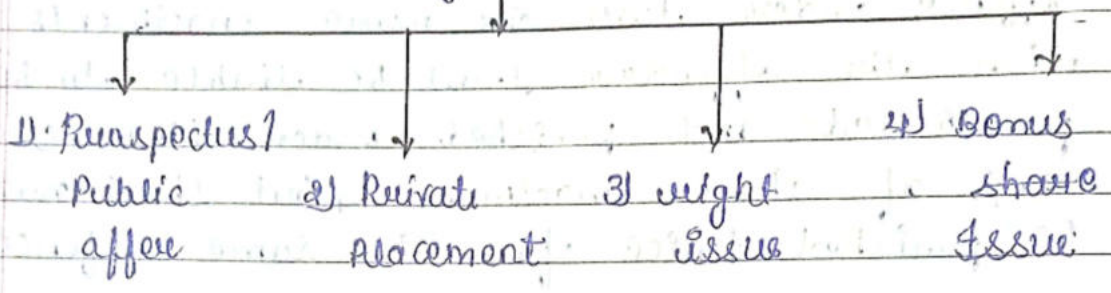 1). Prospectus/
Public
offer
2) Private
Placement
3) right
issue
4) Bonus
share
Issue